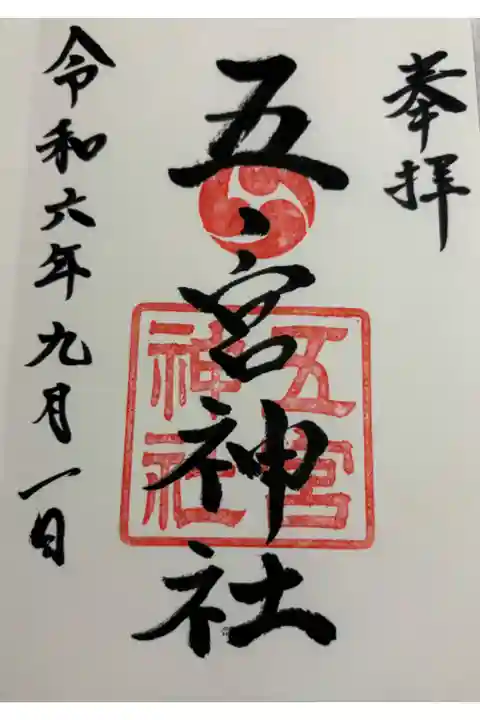 奉拝
五、宮神社
五宮
神社
令和六年九月一日